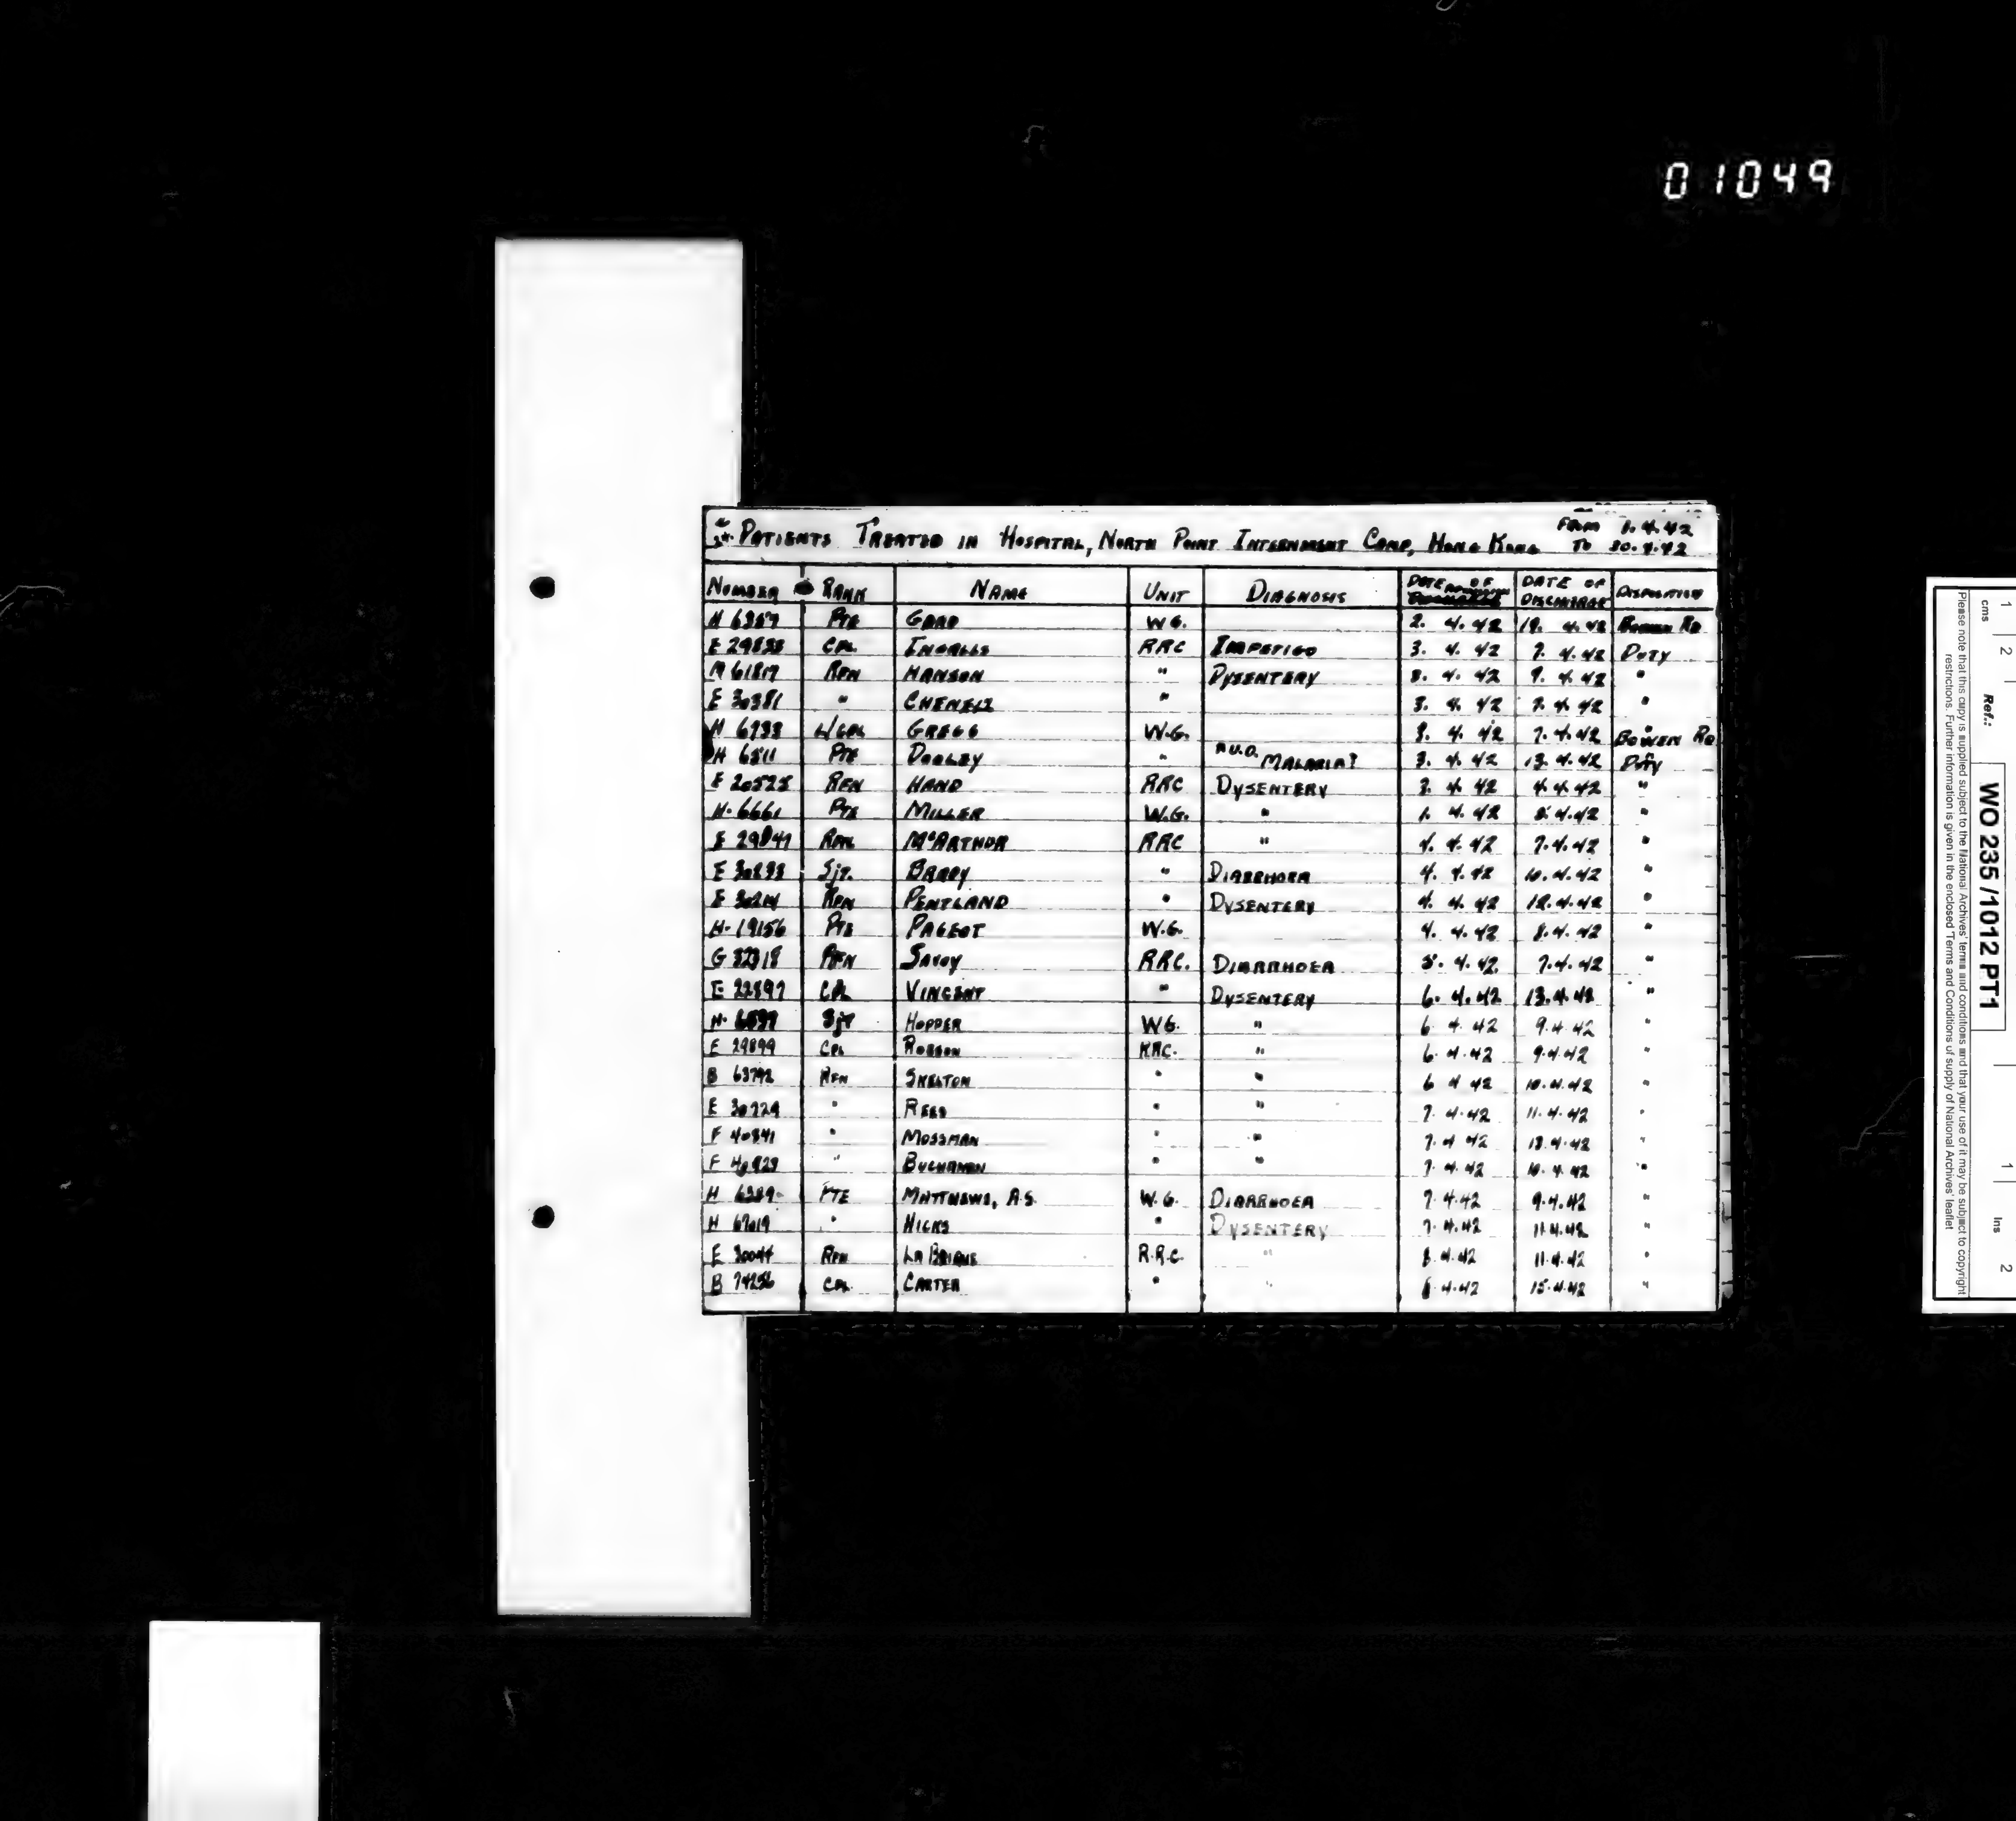 01049
PATIENTS TREATED IN HOSPITAL, NORTH POINT INTERNMENT CAMP, HONG KONG FROM 1.4.42
TO 30.4.42
NUMBER RANK NAME UNIT DIAGNOSIS DATE OF DATE OF DISCHARGE DISPOSITION
H PTE W.G. 2. 4.42 4.42
E CPL INGALLS RRC IMPETIGO 3. 4. 42 7. 4.42 DUTY
RFN HANSON " DYSENTERY 4. 42 9. 4.42 "
E 30381 " " 3. 4. 42 4.42 "
H L/CPL GREGG W.G. 4. 42 7.4.42 BOWEN RD
H 6511 PTE DOOLEY " MALARIA? 3. 4.42 13.4.42 DUTY
E RFN HAND RRC DYSENTERY 3. 4. 42 4.4.42 "
H. 6661 PTE MILLER W.G. " 4.42 8.4.42 "
E RFN McARTHUR RRC " 4. 4. 42 7.4.42 "
E Sjt. BARRY " DIARRHOEA 4. 4.42 10.4.42 "
E RFN PENTLAND " DYSENTERY 4. 4. 42 12.4.42 "
H. 19156 PTE PAGEOT W.G. 4. 4.42 8.4.42 "
G RFN SAVOY RRC. DIARRHOEA 5. 4.42. 7.4.42 "
E 22897 CPL VINCENT " DYSENTERY 6. 4.42 13.4.42 "
H. Sjt HOPPER WG. " 6 4 42 9.4 42 "
E 29899 CPL ROBSON RRC. " 6. 4.42 9.4.42 "
B 63792 RFN SKELTON " " 6 4 42 10.4.42 "
E " REED " " 7. 4.42 11.4.42 "
F " MOSSMAN " " 7.4 42 13.4.42 "
F " BUCHANAN " " 7. 4.42 10.4.42 "
H PTE MATTHEWS, A.S. W.G. DIARRHOEA 7 4.42 9.4.42 "
H " HICKS " DYSENTERY 7.4.42 11.4.42 "
E 30044 RFN R.R.C. " 8.4.42 11.4.42 "
B 74256 CPL CARTER " " 4.42 15.4.42 "
cms 1 2 1 Ins 2
Ref.: WO 235 /1012 PT1
Please note that this copy is supplied subject to the National Archives' terms and conditions and that your use of it may be subject to copyright
restrictions. Further information is given in the enclosed 'Terms and Conditions of supply of National Archives' leaflet